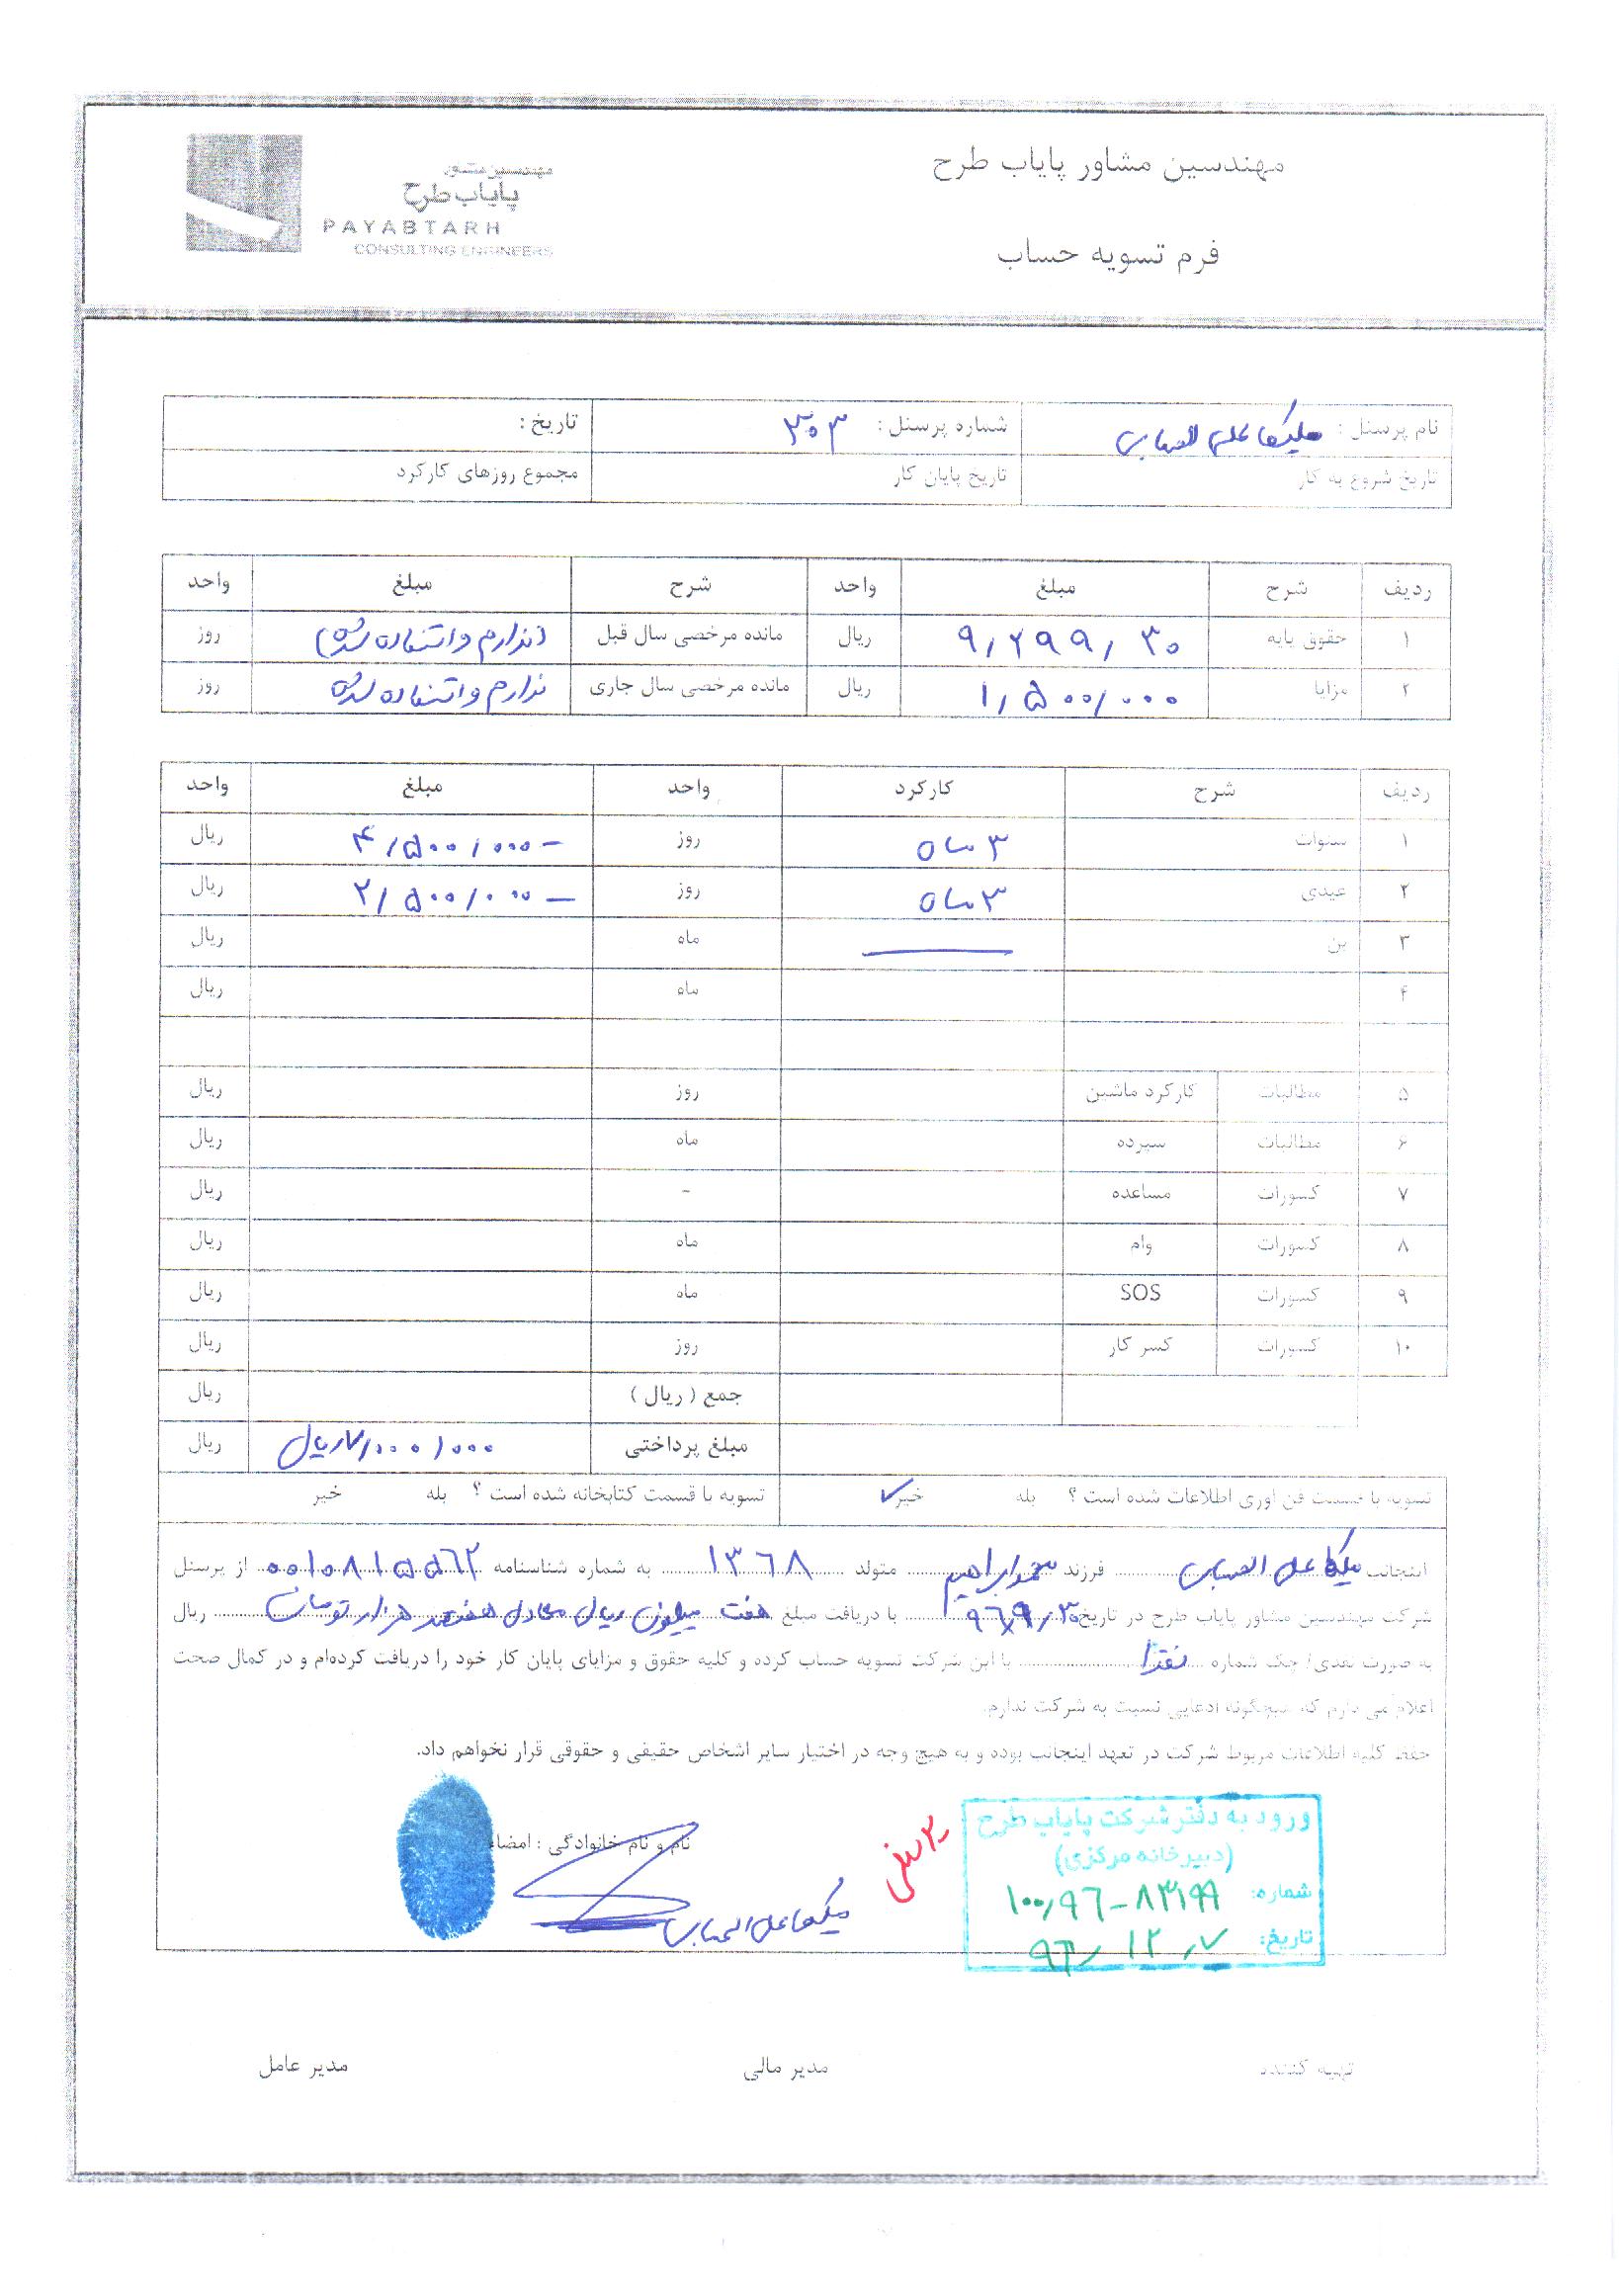 مهندسین مشاور پایاب طرح
فرم تسویه حساب
مهندسین مشاور
پایاب طرح
PAYABTARH
CONSULTING ENGINEERS
نام پرسنل : ملیکا علی شماره پرسنل : ۳۰۳ تاریخ :
تاریخ شروع به کار تاریخ پایان کار مجموع روزهای کارکرد
ردیف شرح مبلغ واحد شرح مبلغ واحد
۱ حقوق پایه ۹,۲۹۹,۳۰ ریال مانده مرخصی سال قبل (ندارم و استفاده شده) روز
۲ مزایا ۱,۵۰۰/۰۰۰ ریال مانده مرخصی سال جاری ندارم و استفاده شده روز
ردیف شرح کارکرد واحد مبلغ واحد
۱ سنوات ۳ ماه روز ۴/۵۰۰/۰۰۰ - ریال
۲ عیدی ۳ ماه روز ۲/۵۰۰/۰۰۰ - ریال
۳ بن ماه ریال
۴ ماه ریال
۵ مطالبات کارکرد ماشین روز ریال
۶ مطالبات سپرده ماه ریال
۷ کسورات مساعده - ریال
۸ کسورات وام ماه ریال
۹ کسورات SOS ماه ریال
۱۰ کسورات کسر کار روز ریال
جمع ( ریال ) ریال
مبلغ پرداختی ۷/۰۰۰/۰۰۰ ریال ریال
تسویه با قسمت فن اوری اطلاعات شده است ؟ بله خیر ✓ تسویه با قسمت کتابخانه شده است ؟ بله خیر
اینجانب ملیکا علی فرزند محمدابراهیم متولد ۱۳۶۸ به شماره شناسنامه ۰۰۱۰۸۱۵۵۶۲ از پرسنل
شرکت مهندسین مشاور پایاب طرح در تاریخ ۹۶/۹/۳۰ با دریافت مبلغ هفت میلیون ریال معادل هفتصد هزار تومان ریال
به صورت نقدی/ چک شماره نقدا با این شرکت تسویه حساب کرده و کلیه حقوق و مزایای پایان کار خود را دریافت کرده‌ام و در کمال صحت
اعلام می دارم که هیچگونه ادعایی نسبت به شرکت ندارم.
حفظ کلیه اطلاعات مربوط شرکت در تعهد اینجانب بوده و به هیچ وجه در اختیار سایر اشخاص حقیقی و حقوقی قرار نخواهم داد.
نام و نام خانوادگی : امضاء
ملیکا علی
ورود به دفتر شرکت پایاب طرح
(دبیرخانه مرکزی)
شماره: ۱۰۰,۹۶-۸۳۱۹۹
تاریخ: ۹۶/۱۲/۷
تهیه کننده مدیر مالی مدیر عامل